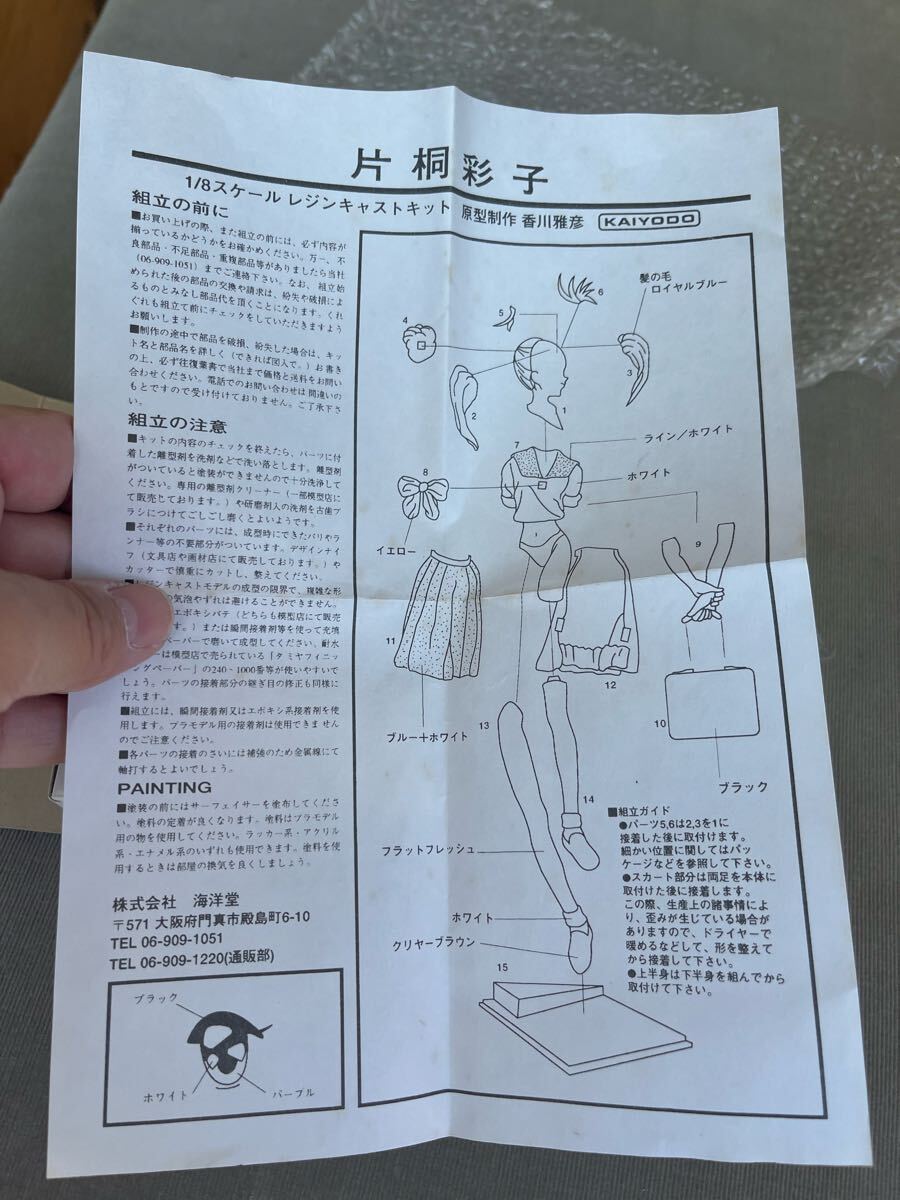 片桐彩子
1/8スケール レジンキャストキット 原型制作 香川雅彦 KAIYODO
組立の前に
■お買い上げの際、また組立の前には、必ず内容が
揃っているかどうかをお確かめください。万一、不
良部品・不足部品・重複部品等がありましたら当社
(06-909-1051)までご連絡下さい。なお、組立始
められた後の部品の交換や請求は、紛失や破損によ
るものとみなし部品代を頂くことになります。くれ
ぐれも組立て前にチェックをしていただきますよう
お願いします。
■制作の途中で部品を破損、紛失した場合は、キッ
ト名と部品名を詳しく(できれば図入で。)お書き
の上、必ず往復葉書で当社まで価格と送料をお問い
合わせください。電話でのお問い合わせは間違いの
もとですので受け付けておりません。ご了承下さ
い。
組立の注意
■キットの内容のチェックを終えたら、パーツに付
着した離型剤を洗剤などで洗い落とします。離型剤
がついていると塗装ができませんので十分洗浄して
ください。専用の離型剤クリーナー(一部模型店に
て販売しております。)や研磨剤入の洗剤を古歯ブ
ラシにつけてごしごし磨くとよいようです。
■それぞれのパーツには、成型時にできたバリやラ
ンナー等の不要部分がついています。デザインナイ
フ(文具店や画材店にて販売しております。)や
カッターで慎重にカットし、整えてください。
■レジンキャストモデルの成型の限界で、複雑な形
の気泡やずれは避けることができません。
エポキシパテ(どちらも模型店にて販売
す。)または瞬間接着剤等を使って充填
ペーパーで磨いて成型してください、耐水
ーは模型店で売られている「タミヤフィニッ
ングペーパー」の240-1000番等が使いやすいで
しょう。パーツの接着部分の継ぎ目の修正も同様に
行えます。
■組立には、瞬間接着剤又はエポキシ系接着剤を使
用します。プラモデル用の接着剤は使用できません
のでご注意ください。
■各パーツの接着のさいには補強のため金属線にて
軸打するとよいでしょう。
PAINTING
■塗装の前にはサーフェイサーを塗布してくださ
い。塗料の定着が良くなります。塗料はプラモデル
用の物を使用してください。ラッカー系・アクリル
系・エナメル系のいずれも使用できます。塗料を使
用するときは部屋の換気を良くしましょう。
株式会社 海洋堂
〒571 大阪府門真市殿島町6-10
TEL 06-909-1051
TEL 06-909-1220(通販部)
ブラック
ホワイト
パープル
髪の毛
ロイヤルブルー
6
5
4
3
2
1
7
ライン/ホワイト
ホワイト
8
イエロー
9
11
12
10
13
ブルー+ホワイト
ブラック
14
フラットフレッシュ
ホワイト
クリヤーブラウン
15
■組立ガイド
●パーツ5,6は2,3を1に
接着した後に取付けます。
細かい位置に関してはパッ
ケージなどを参照して下さい。
●スカート部分は両足を本体に
取付けた後に接着します。
この際、生産上の諸事情によ
り、歪みが生じている場合が
ありますので、ドライヤーで
暖めるなどして、形を整えて
から接着して下さい。
●上半身は下半身を組んでから
取付けて下さい。